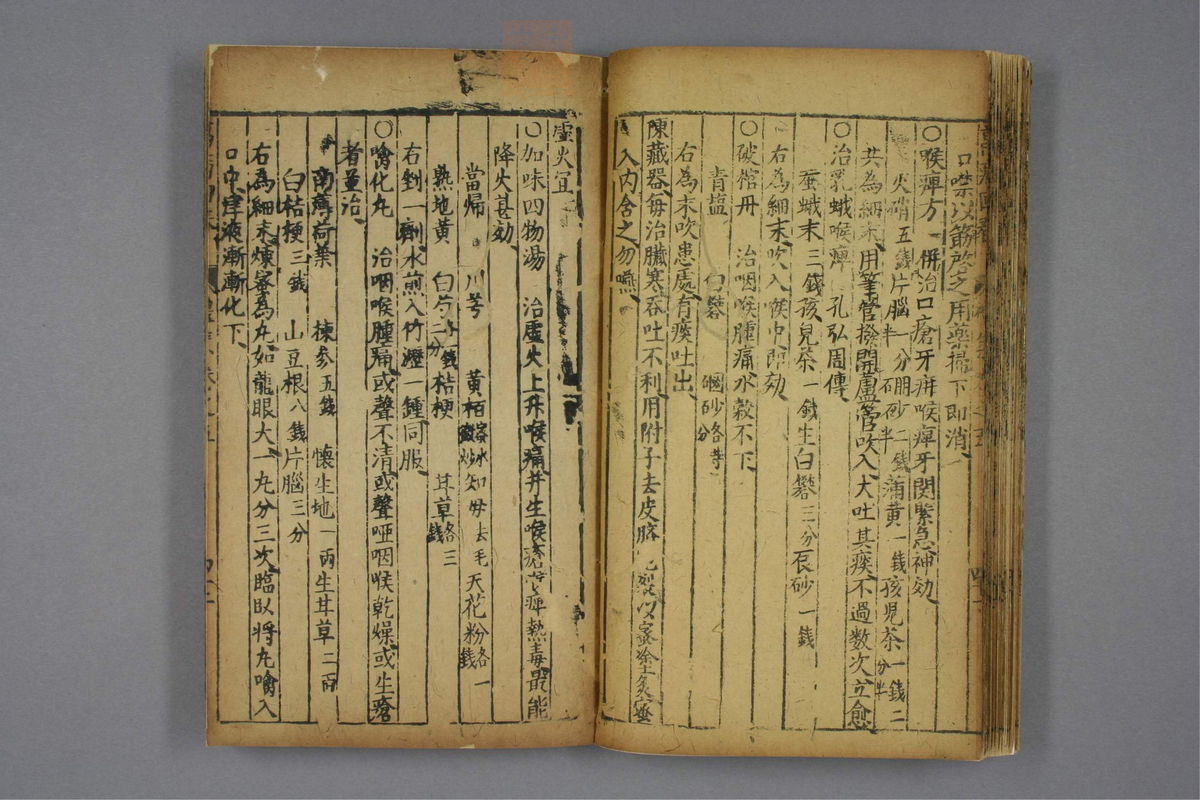 口噤以筯啟之用藥掃下即消
○喉痺方　併治口瘡牙疳喉痺牙関緊急神効
火硝五錢片腦一分半硼砂二錢半蒲黄一錢孩児茶一錢二分半
共為細末用筆管撥開蘆管吹入大吐其痰不過数次立愈
○治乳蛾喉痺　孔弘周傳
蚕蛾末三錢孩児茶一錢生白礬三分砂一錢
右為細末吹入喉中即効
○破棺丹　治咽喉腫痛水穀不下
青鹽　白礬　硇砂各等分
右為末吹患處有痰吐出
陳藏器每治臟寒吞吐不利用附子去皮臍裂以蜜塗炙蜜
入內含之勿嚥
虛火宜
○加味四物湯　治虛火上升喉痛并生喉瘡喉痺熱毒最能
降火甚効
當帰　川芎　黄栢蜜水炒知母去毛天花粉各一錢
熟地黄　白芍一錢二分桔梗　甘草各三錢
右剉一劑水煎入竹瀝一鍾同服
○噙化丸　治咽喉腫痛或聲不清或聲啞咽喉乾燥或生瘡
者並治
南薄荷葉　揀參五錢　懐生地一兩生甘草二兩
白桔梗三錢　山豆根八錢片腦三分
右為細末煉蜜為丸如龍眼大一丸分三次臨臥將丸噙入
口中津液漸漸化下